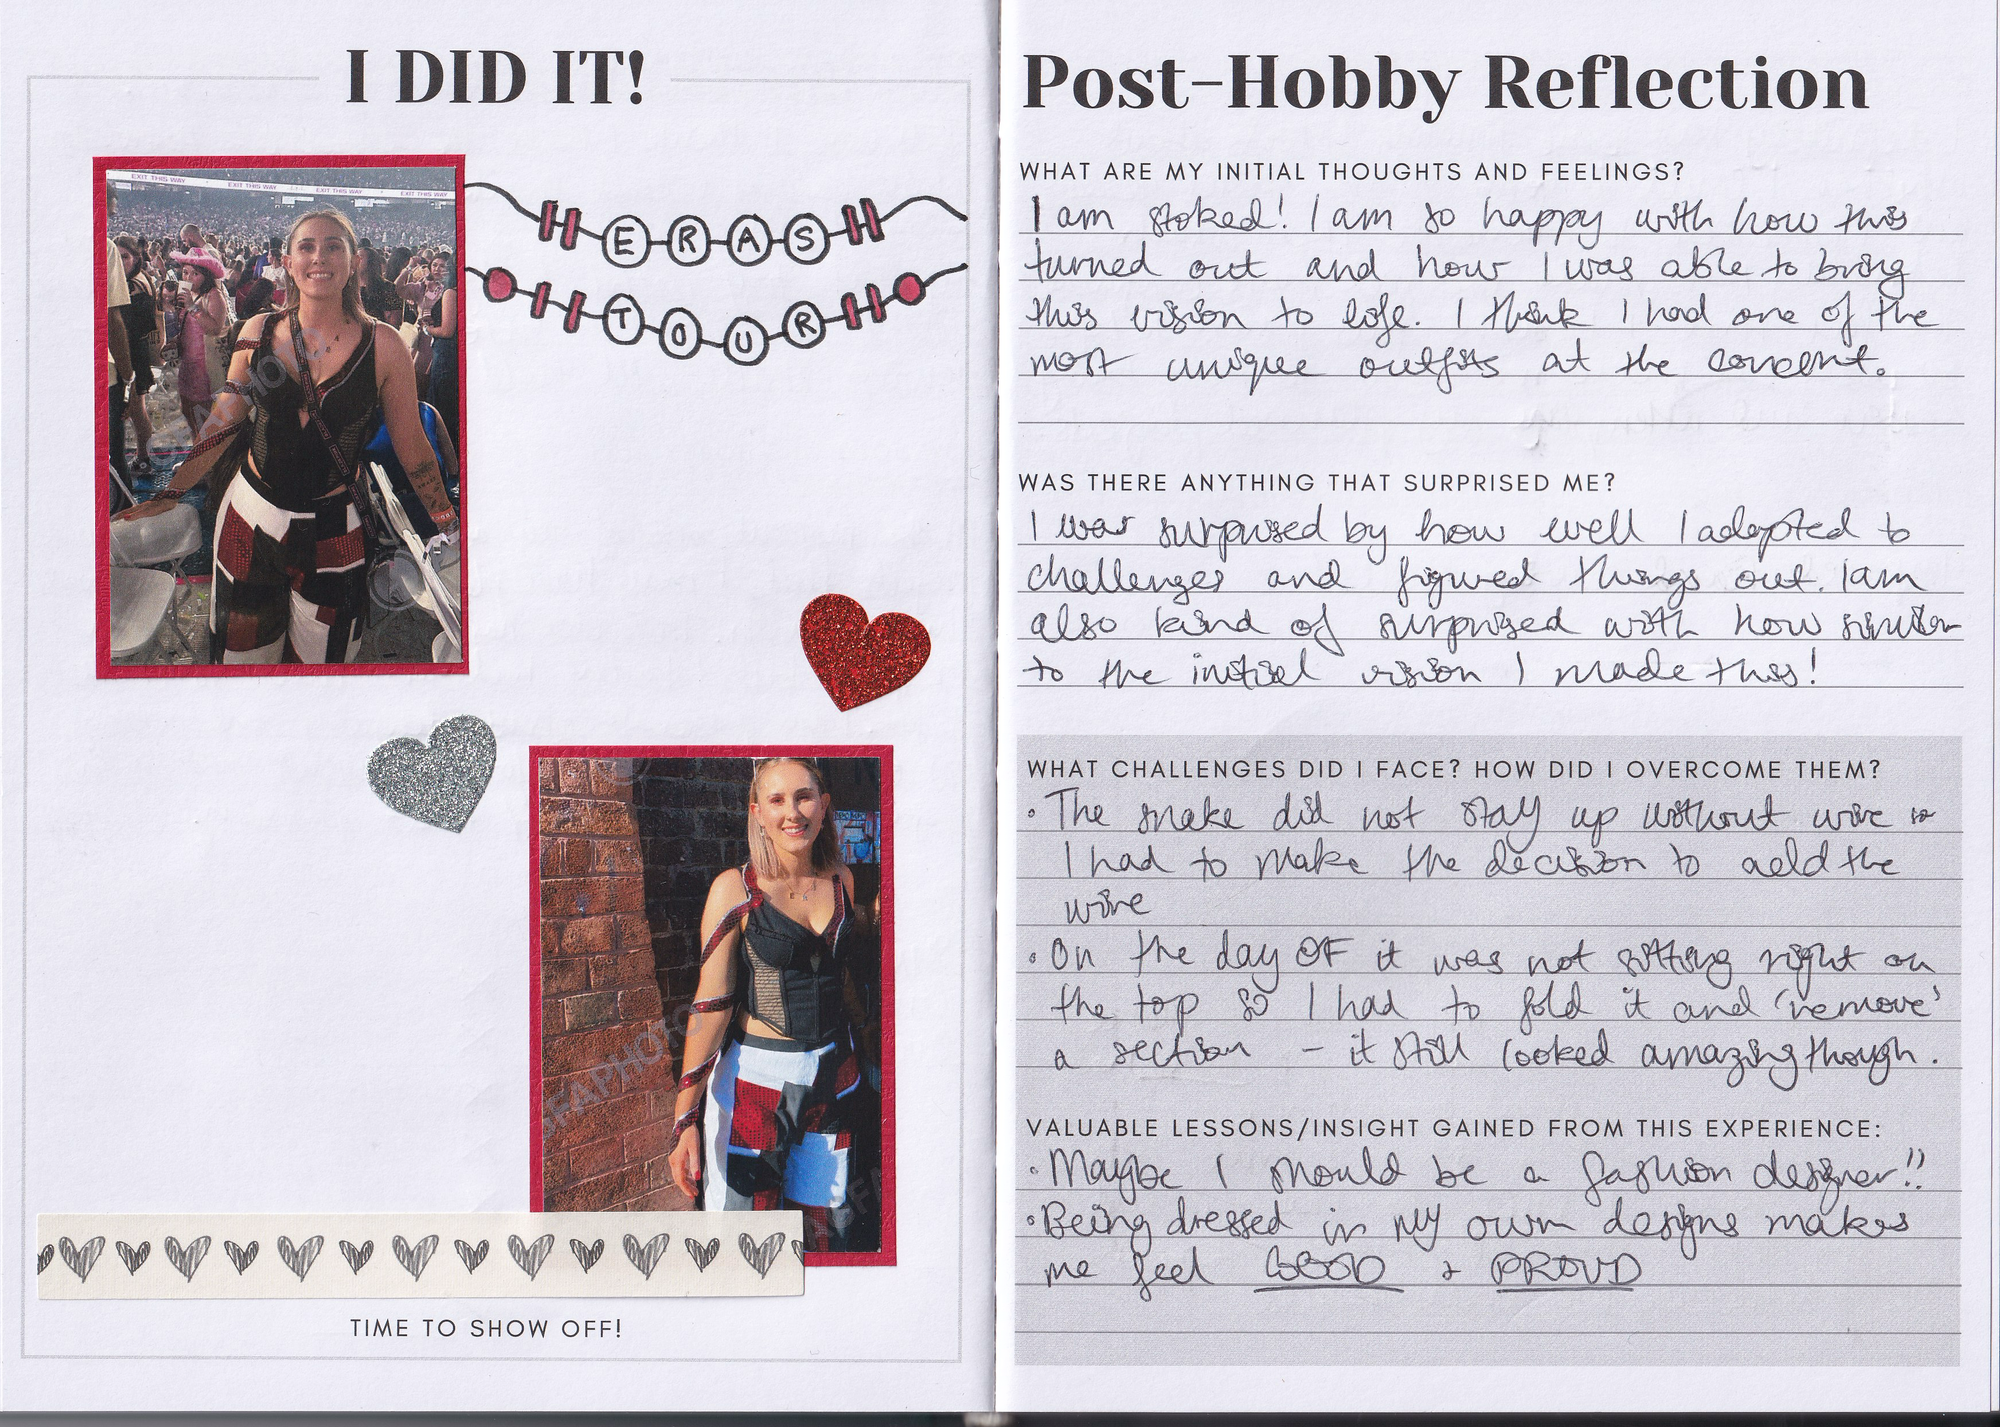 I DID IT!
EXIT THIS WAY
EXIT THIS WAY
EXIT THIS WAY
EXIT THIS WAY
ERAS
TOUR
TIME TO SHOW OFF!
Post-Hobby Reflection
WHAT ARE MY INITIAL THOUGHTS AND FEELINGS?
I am stoked! I am so happy with how this
turned out and how I was able to bring
this vision to life. I think I had one of the
most unique outfits at the concert.
WAS THERE ANYTHING THAT SURPRISED ME?
I was surprised by how well I adapted to
challenges and figured things out. I am
also kind of surprised with how similar
to the initial vision I made this!
WHAT CHALLENGES DID I FACE? HOW DID I OVERCOME THEM?
• The snake did not stay up without wire so
I had to make the decision to add the
wire
• On the day OF it was not sitting right on
the top so I had to fold it and 'remove'
a section - it still looked amazing though.
VALUABLE LESSONS/INSIGHT GAINED FROM THIS EXPERIENCE:
• Maybe I should be a fashion designer!!
• Being dressed in my own designs makes
me feel GOOD & PROUD